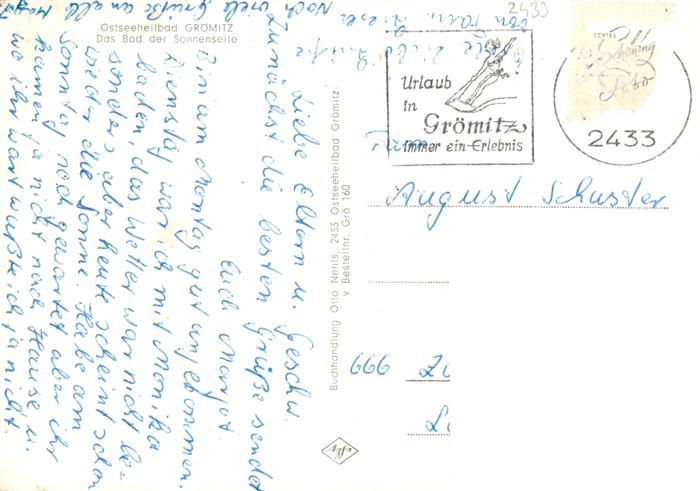 Ostseeheilbad GRÖMITZ
Das Bad der Sonnenseite
Liebe Eltern u. Geschw.
Zunächst die besten Grüße sendet
Euch Margot.
Bin am Montag gut angekommen.
Dienstag war ich mit Monika
baden, das Wetter war nicht be-
sonders aber heute scheint schon
wieder die Sonne. Habe am
Sonntag noch gewartet aber ihr
kamen ja nicht nach Hause u.
wo ihr wart wußte ich ja nicht.
Noch viele Grüße an all
Buchhandlung Otto Nehls, 2433 Ostseeheilbad Grömitz
v Bestellnr. Grö 160
2433
Urlaub
in
Grömitz
immer ein Erlebnis
2433
Schöning
Foto
August Schuster
666